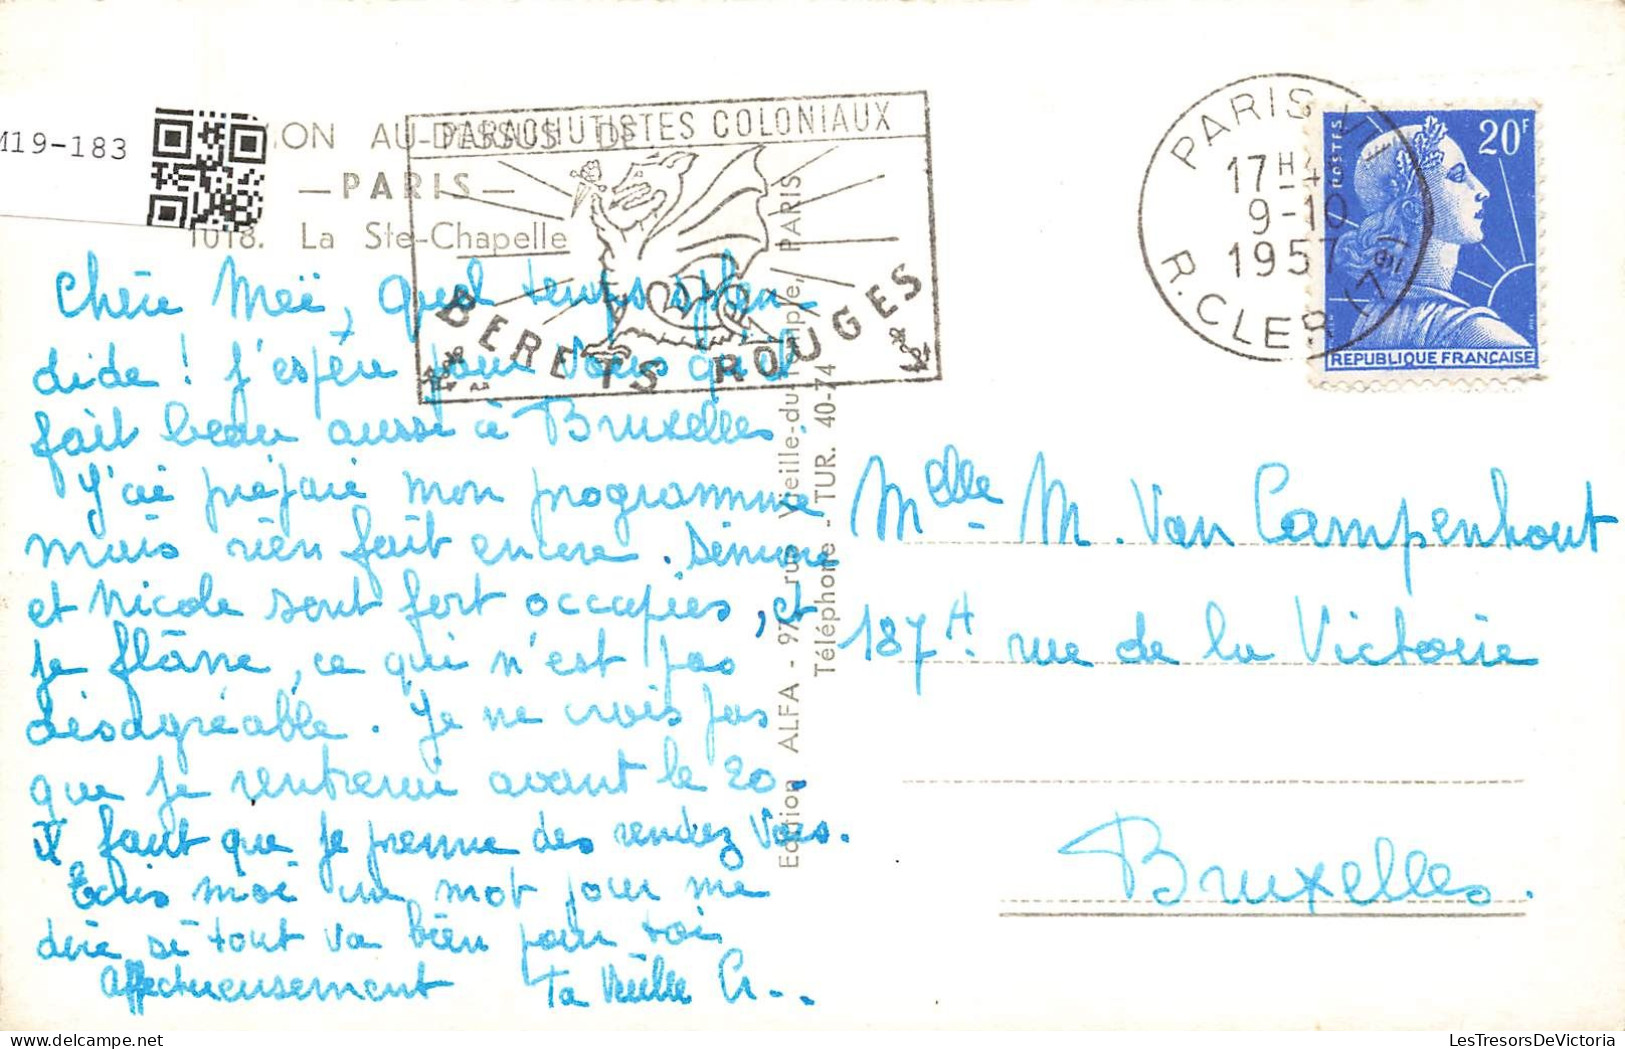 M19-183
ION AU-DESSUS DE
—PARIS—
1018. La Ste-Chapelle
PARACHUTISTES COLONIAUX
BERETS ROUGES
PARIS VII
17H4
9-10
1957
R. CLER (7e)
POSTES
20F
REPUBLIQUE FRANÇAISE
Chère Meï, quel temps splen-
dide ! J'espère pour vous qu'il
fait beau aussi à Bruxelles.
J'ai préparé mon programme
mais rien fait encore. Simone
et Nicole sont fort occupées, et
je flâne, ce qui n'est pas
désagréable. Je ne crois pas
que je rentrerai avant le 20.
Il faut que je prenne des rendez vous.
Ecris moi un mot pour me
dire si tout va bien pour toi
Affectueusement Ta Vieille
Edition ALFA - 97, rue Vieille-du-Temple, PARIS
Téléphone - TUR. 40-74
Melle M. Van Campenhout
187A. rue de la Victoire
Bruxelles.
LesTresorsDeVictoria